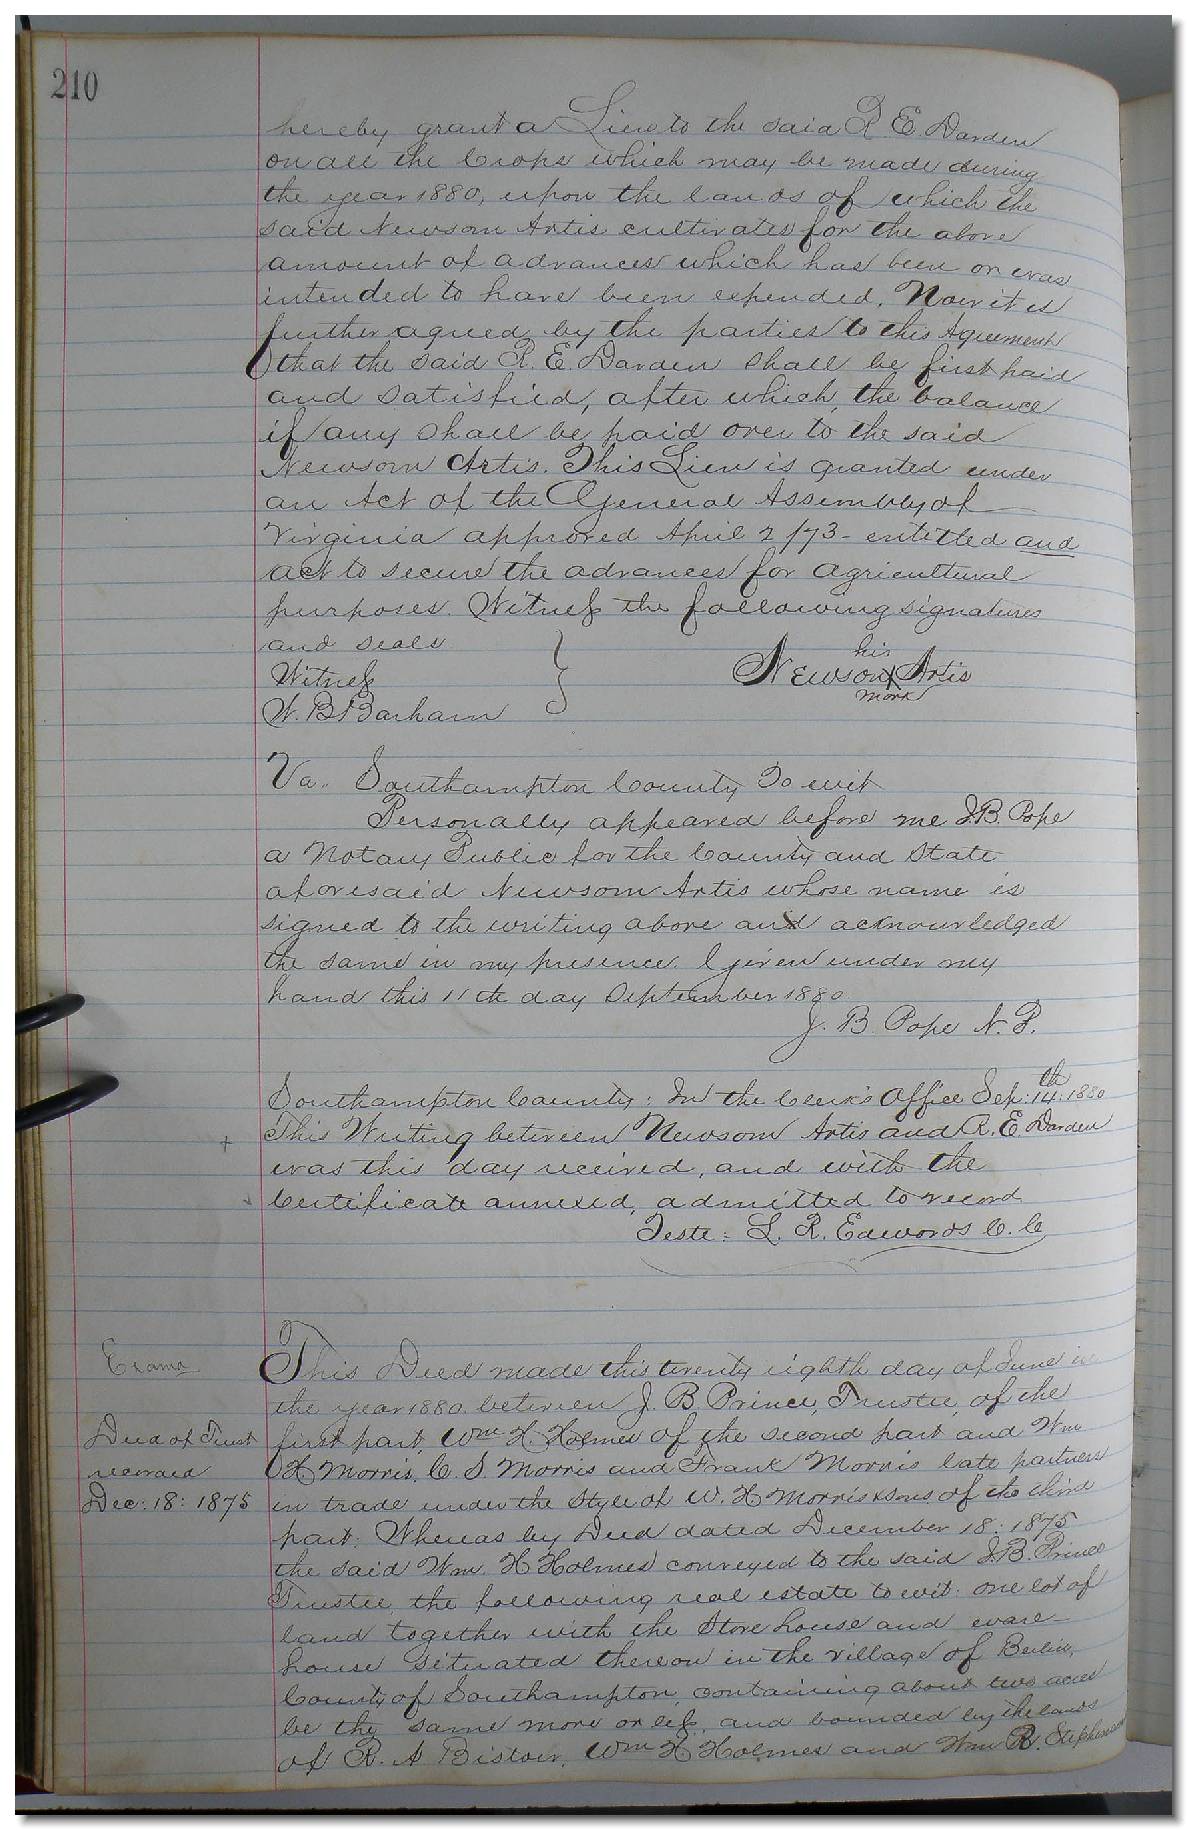 210
hereby grant a Lien to the said R. E. Darden
on all the Crops which may be made during
the year 1880, upon the lands of which the
said Newsom Artis cultivates for the above
amount of advances which has been or was
intended to have been expended. Now it is
further agreed by the parties to this Agreement
that the said R. E. Darden shall be first paid
and satisfied, after which, the balance
if any shall be paid over to the said
Newsom Artis. This Lien is granted under
an Act of the General Assembly of
Virginia approved April 2/73 - entitled and
act to secure the advances for agricultural
purposes. Witness the following signatures
and seals
his
Witness Newsom X Artis
mark
W. B. Barham
Va. Southampton County To wit
Personally appeared before me J. B. Pope
a Notary Public for the County and State
aforesaid Newsom Artis whose name is
signed to the writing above and acknowledged
the same in my presence. Given under my
hand this 11th day September 1880
J. B. Pope N. P.
Southampton County: In the Clerk's Office Sep: 14th 1880
+ This Writing between Newsom Artis and R. E. Darden
was this day received, and with the
Certificate annexed, admitted to record
Teste: L. R. Edwards C. C.
This Deed made this twenty eighth day of June in
the year 1880. between J. B. Prince, Trustee, of the
Deed of Trust first part, Wm H. Holmes of the second part and Wm
recorded H Morris, C. S. Morris and Frank Morris late partners
Dec: 18: 1875 in trade under the Style of W. H Morris & Sons, of the third
part: Whereas by Deed dated December 18: 1875
the said Wm. H Holmes conveyed to the said J. B. Prince
Trustee, the following real estate to wit: one lot of
land together with the Store house and ware-
house situated thereon in the village of Berlin,
County of Southampton, containing about two acres
be the same more or less, and bounded by the lands
of R. A Bistow, Wm H Holmes and Wm R. Stephenson